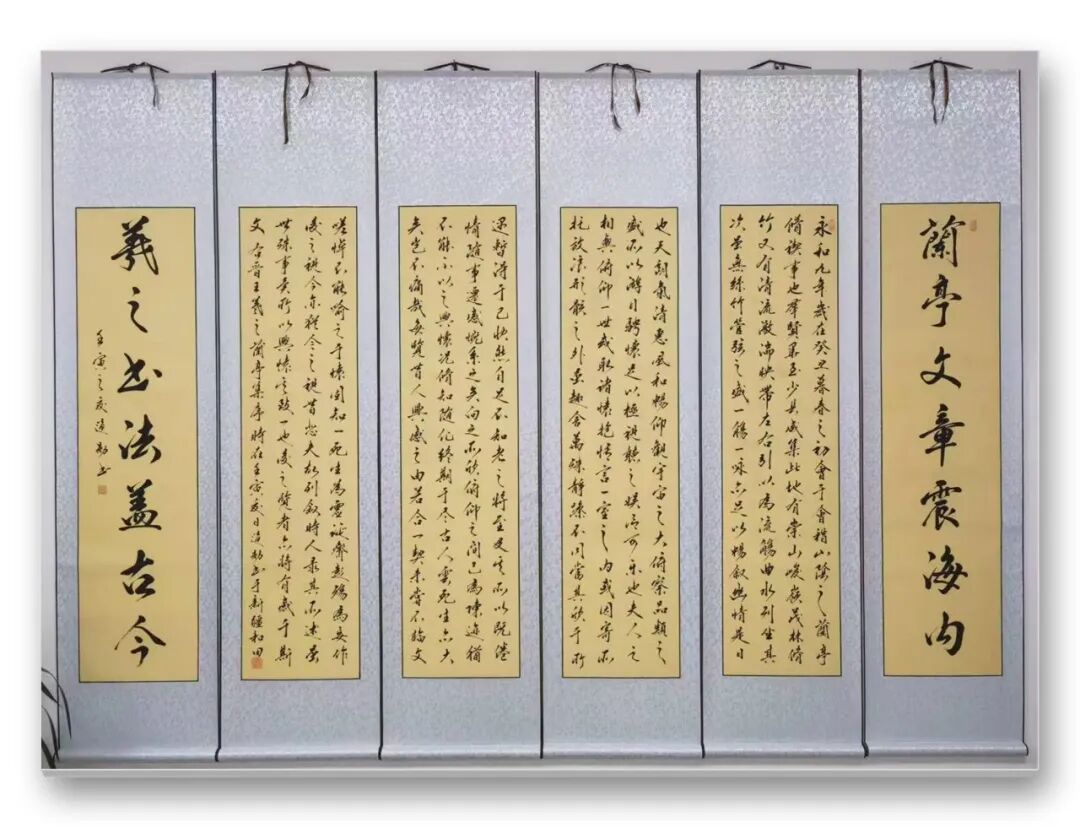 蘭亭文章震海内
永和九年歲在癸丑暮春之初會于會稽山陰之蘭亭
脩禊事也羣賢畢至少長咸集此地有崇山峻嶺茂林脩
竹又有清流激湍映帶左右引以為流觴曲水列坐其
次虽無絲竹管弦之盛一觴一咏亦足以暢敘幽情是日
也天朗氣清惠風和暢仰觀宇宙之大俯察品類之
盛所以游目騁懷足以極視聽之娱信可樂也夫人之
相與俯仰一世或取諸懷抱悟言一室之内或因寄所
托放浪形骸之外虽趣舍萬殊靜躁不同當其欣于所
遇暫得于己快然自足不知老之將至及其所以既倦
情隨事遷感慨系之矣向之所欣俯仰之間已為陳迹猶
不能不以之興懷況脩短隨化終期于尽古人雲死生亦大
矣豈不痛哉每覽昔人興感之由若合一契未嘗不臨文
嗟悼不能喻之于懷固知一死生為虛誕齊彭殤為妄作
後之視今亦猶今之視昔悲夫故列叙時人录其所述虽
世殊事異所以興懷其致一也後之覽者亦將有感于斯
文 右晉王羲之蘭亭集序時在壬寅夏日 书于新疆和田
羲之书法盖古今
壬寅之夏 书